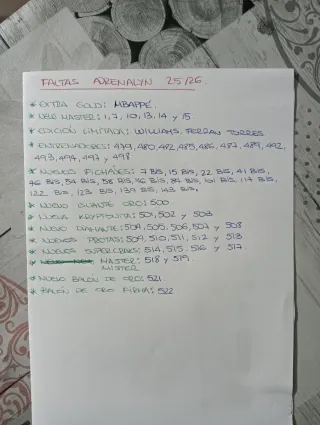 FALTAS ADRENALYN 25/26.
* EXTRA GOLD: MBAPPÉ.
* NEW MASTER: 1, 7, 10, 13, 14 y 15
* EDICIÓN LIMITADA: WILLIAMS, FERRAN TORRES
* ENTRENADORES: 479, 480, 482, 485, 486, 487, 489, 492,
493, 494, 497 y 498
* NUEVOS FICHAJES: 7 BIS, 15 BIS, 22 BIS, 41 BIS,
46 BIS, 54 BIS, 58 BIS, 76 BIS, 84 BIS, 101 BIS, 117 BIS,
122 BIS, 123 BIS, 139 BIS, 143 BIS,
* NUEVO GUANTE ORO: 500
* NUEVA KRYPTONITA: 501, 502 y 503
* NUEVO DIAMANTE: 504, 505, 506, 507 y 508
* NUEVOS PROTAS: 509, 510, 511, 512 y 513
* NUEVOS SUPERCRACKS: 514, 515, 516 y 517.
* MASTER: 518 y 519.
MISTER
* NUEVO BALÓN DE ORO: 521.
* BALÓN DE ORO FIRMA: 522